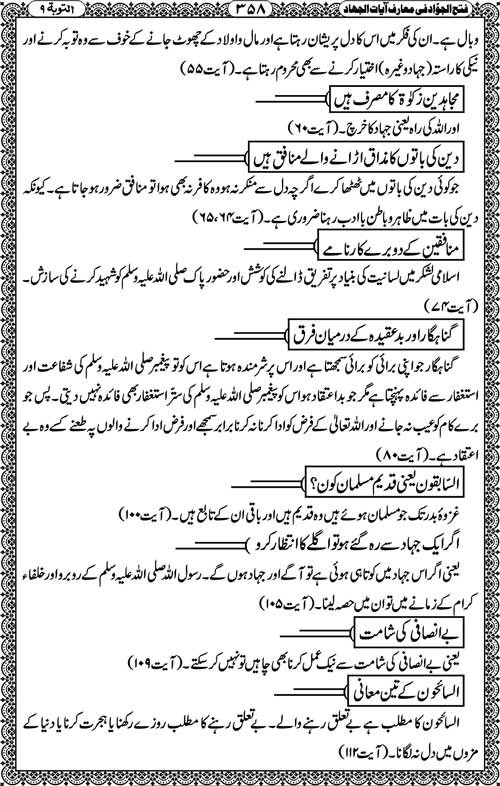 فتح الجوّاد فی معارف آیات الجهاد ۳۵۸ التوبة ۹
وبال ہے۔ ان کی فکر میں اس کا دل پریشان رہتا ہے اور مال و اولاد کے چھوٹ جانے کے خوف سے وہ توبہ کرنے اور
نیکی کا راستہ (جہاد وغیرہ) اختیار کرنے سے بھی محروم رہتا ہے۔ (آیت ۵۵)
مجاہدین زکوٰۃ کا مصرف ہیں
اور اللہ کی راہ یعنی جہاد کا خرچ۔ (آیت ۶۰)
دین کی باتوں کا مذاق اڑانے والے منافق ہیں
جو کوئی دین کی باتوں میں ٹھٹھا کرے اگرچہ دل سے منکر نہ ہو وہ کافر نہ بھی ہوا تو منافق ضرور ہو جاتا ہے۔ کیونکہ
دین کی بات میں ظاہر و باطن با ادب رہنا ضروری ہے۔ (آیت ۶۴، ۶۵)
منافقین کے دو برے کارنامے
اسلامی لشکر میں لسانیت کی بنیاد پر تفریق ڈالنے کی کوشش اور حضور پاک صلی اللہ علیہ وسلم کو شہید کرنے کی سازش۔
(آیت ۷۴)
گناہگار اور بد عقیدہ کے درمیان فرق
گناہگار جو اپنی برائی کو برائی سمجھتا ہے اور اس پر شرمندہ ہوتا ہے اس کو تو پیغمبر صلی اللہ علیہ وسلم کی شفاعت اور
استغفار سے فائدہ پہنچتا ہے مگر جو بد اعتقاد ہو اس کو پیغمبر صلی اللہ علیہ وسلم کی ستّر استغفار بھی فائدہ نہیں دیتی۔ پس جو
برے کام کو عیب نہ جانے اور اللہ تعالیٰ کے فرض کو ادا کرنا نہ کرنا برابر سمجھے اور فرض ادا کرنے والوں پہ طعنے کسے وہ بے
اعتقاد ہے۔ (آیت ۸۰)
السّابقون یعنی قدیم مسلمان کون؟
غزوۂ بدر تک جو مسلمان ہوئے ہیں وہ قدیم ہیں اور باقی ان کے تابع ہیں۔ (آیت ۱۰۰)
اگر ایک جہاد سے رہ گئے ہو تو اگلے کا انتظار کرو
یعنی اگر اس جہاد میں کوتاہی ہوئی ہے تو آگے اور جہاد ہوں گے۔ رسول اللہ صلی اللہ علیہ وسلم کے روبرو اور خلفاء
کرام کے زمانے میں تو ان میں حصہ لینا۔ (آیت ۱۰۵)
بے انصافی کی شامت
یعنی بے انصافی کی شامت سے نیک عمل کرنا بھی چاہیں تو نہیں کر سکتے۔ (آیت ۱۰۹)
السائحون کے تین معانی
السائحون کا مطلب ہے بے تعلق رہنے والے۔ بے تعلق رہنے کا مطلب روزے رکھنا یا ہجرت کرنا یا دنیا کے
مزوں میں دل نہ لگانا۔ (آیت ۱۱۲)